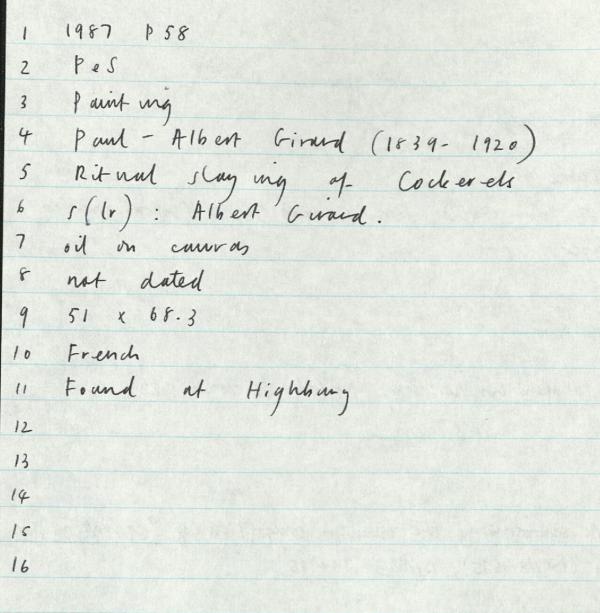 1 1987 P58
2 PeS
3 Painting
4 Paul-Albert Girard (1839-1920)
5 Ritual slaying of Cockerels
6 s(lr): Albert Girard.
7 oil on canvas
8 not dated
9 51 x 68.3
10 French
11 Found at Highbury
12
13
14
15
16